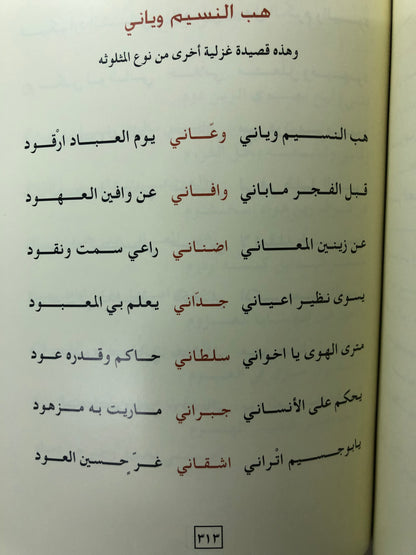 هب النسيم وياني
وهذه قصيدة غزلية أخرى من نوع المثلوثه
هب النسيم وياني وعّاني يوم العباد ارْقود
قبل الفجر ماباني وافاني عن وافين العهود
عن زينين المعاني اضناني راعي سمت ونقود
بسوى نظير اعياني جدّاني يعلم بي المعبود
مترى الهوى يا اخواني سلطاني حاكم وقدره عود
يحكم على الأنساني جبراني ماريت به مزهود
يابوجسيم اتْراني اشقاني غرّ حسين العود
٣١٣